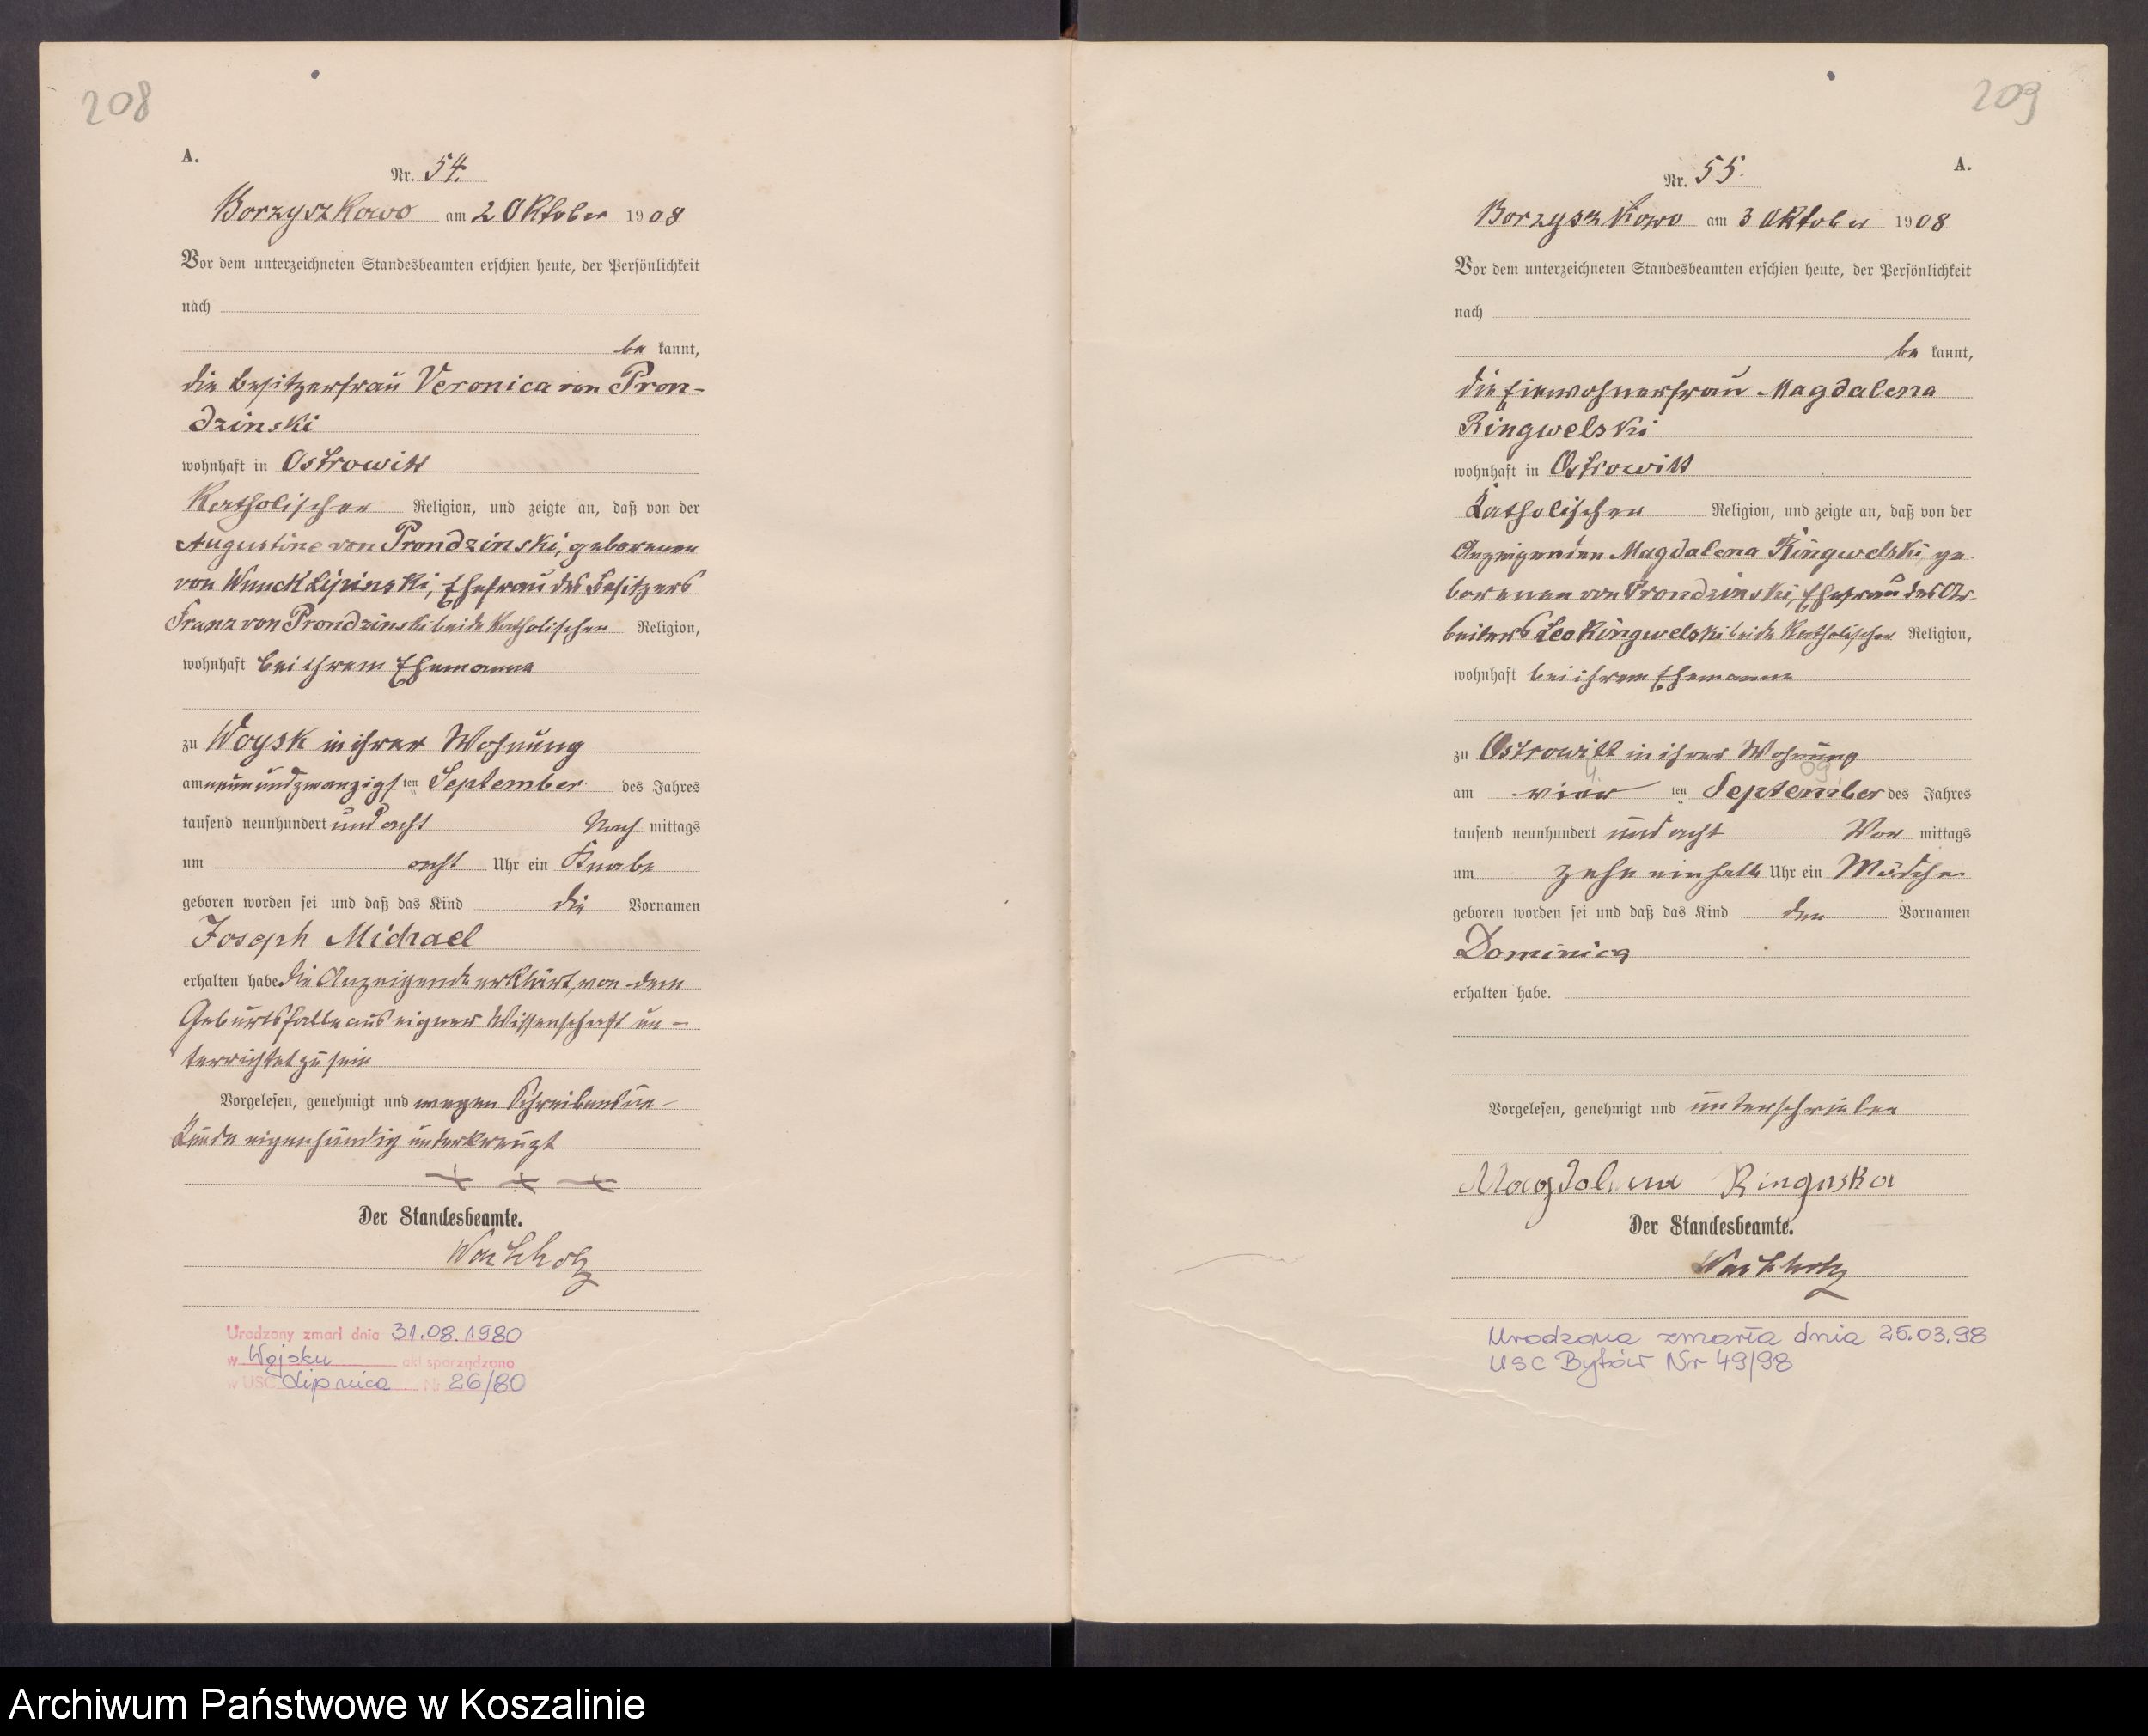 208
A.
Nr. 54.
Borzyszkowo am 2 Oktober 1908
Vor dem unterzeichneten Standesbeamten erschien heute, der Persönlichkeit
nach
be kannt,
die Besitzerfrau Veronica von Pron-
dzinski
wohnhaft in Ostrowitt
Katholischer Religion, und zeigte an, daß von der
Augustine von Prondzinski, geborenen
von Wnuck Lipinski, Ehefrau des Besitzers
Franz von Prondzinski beide Katholischer Religion,
wohnhaft bei ihrem Ehemanne
zu Woysk in ihrer Wohnung
am neunundzwanzigsten September des Jahres
tausend neunhundert und acht Nach mittags
um acht Uhr ein Knabe
geboren worden sei und daß das Kind die Vornamen
Joseph Michael
erhalten habe. Die Anzeigende erklärt, von dem
Geburtsfalle aus eigner Wissenschaft un-
terrichtet zu sein
Vorgelesen, genehmigt und wegen Schreibensun-
kunde eigenhändig unterkreuzt
+ + +
Der Standesbeamte.
Wachholz
Urodzony zmarł dnia 31.08.1980
w Wojsku akt sporządzono
w USC Lipnica Nr 26/80
209
A.
Nr. 55.
Borzyszkowo am 3 Oktober 1908
Vor dem unterzeichneten Standesbeamten erschien heute, der Persönlichkeit
nach
be kannt,
die Einwohnerfrau Magdalena
Ringwelski
wohnhaft in Ostrowitt
Katholischer Religion, und zeigte an, daß von der
Anzeigenden Magdalena Ringwelski, ge
borenen von Prondzinski, Ehefrau des Ar-
beiters Leo Ringwelski beide Katholischer Religion,
wohnhaft bei ihrem Ehemanne
zu Ostrowitt in ihrer Wohnung
4 09
am vier ten September des Jahres
tausend neunhundert und acht Vor mittags
um zehn einhalb Uhr ein Mädchen
geboren worden sei und daß das Kind den Vornamen
Dominica
erhalten habe.
Vorgelesen, genehmigt und unterschrieben
Magdalena Ringwska
Der Standesbeamte.
Wachholz
Urodzona zmarła dnia 25.03.98
USC Bytów Nr 49/98
Archiwum Państwowe w Koszalinie